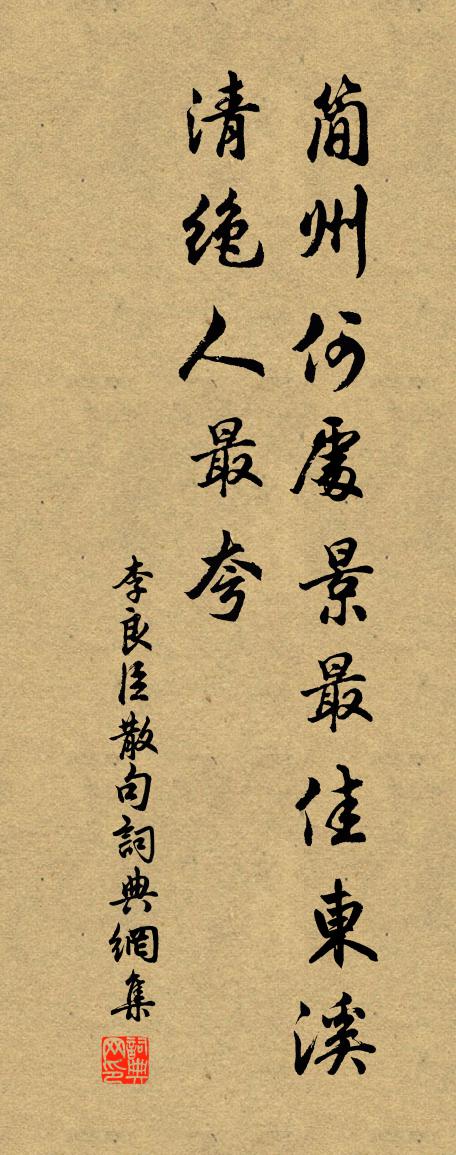 簡州何處景最佳東溪
清絶人最夸
李良臣散句詞典網集
詞典网印